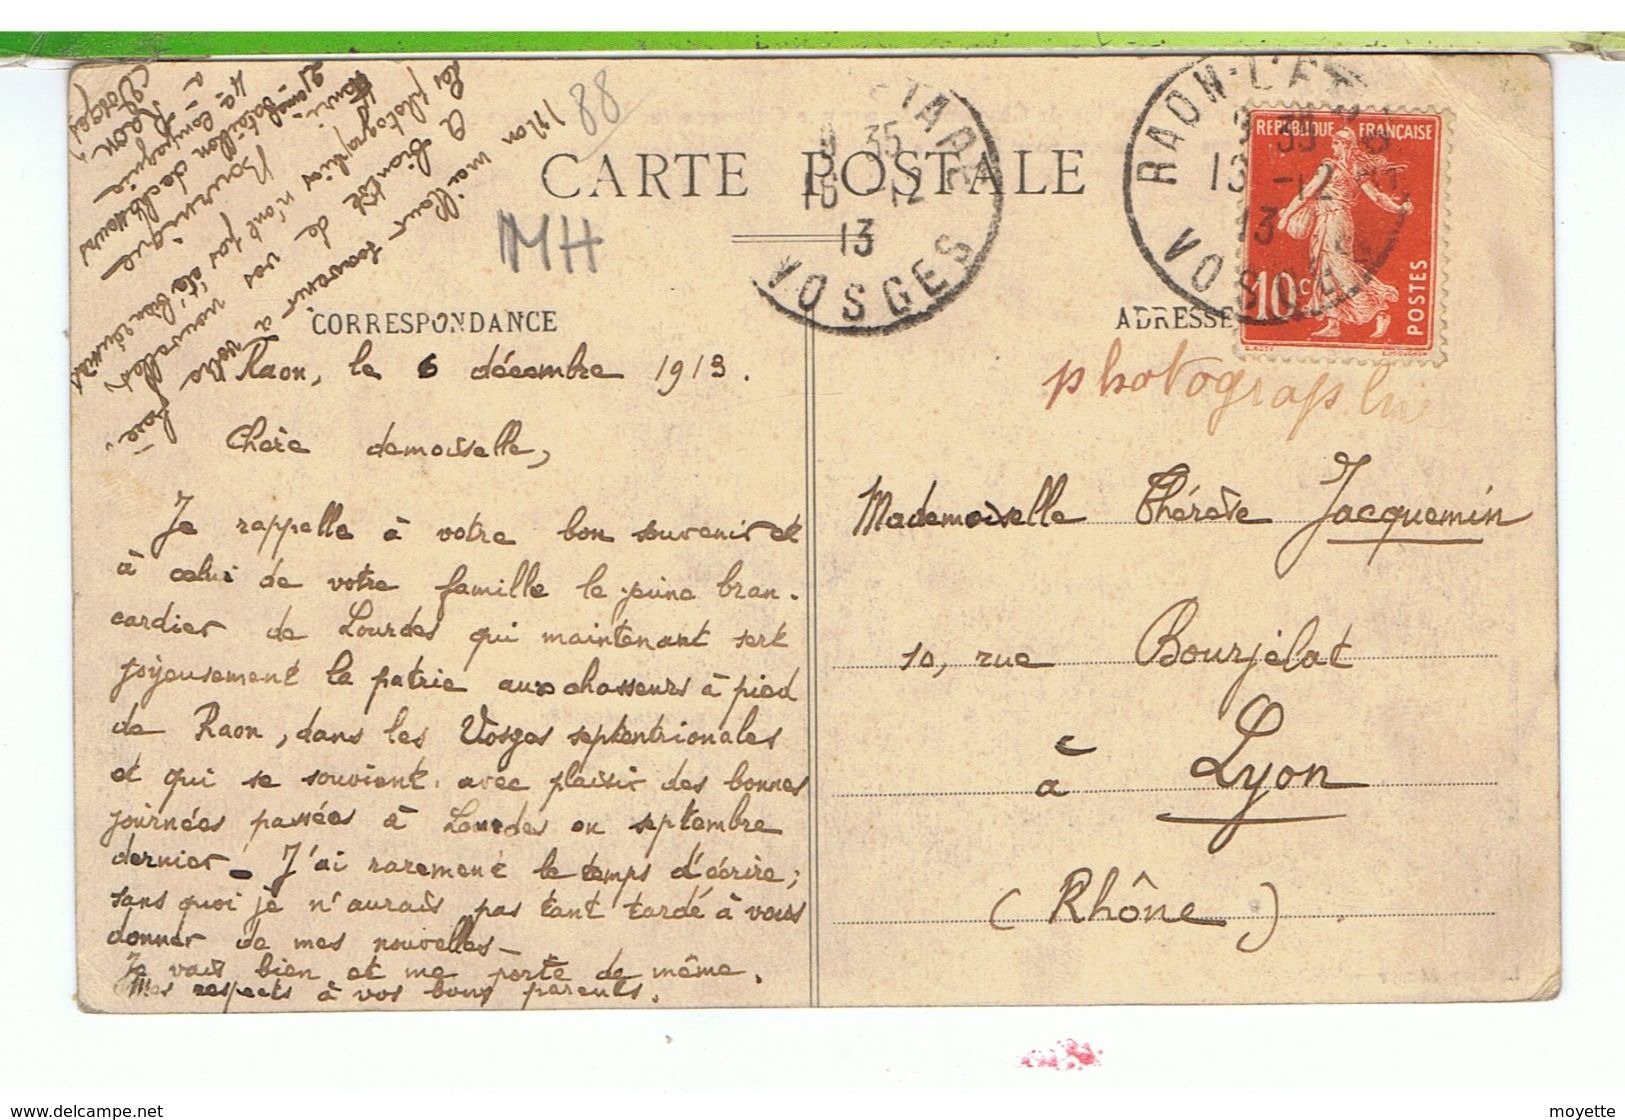 CARTE POSTALE
88
MH
CORRESPONDANCE
Raon, le 6 décembre 1913.
Chère demoiselle,
Je rappelle à votre bon souvenir et
à celui de votre famille le jeune bran-
cardier de Lourdes qui maintenant sert
joyeusement la patrie aux chasseurs à pied
de Raon, dans les Vosges septentrionales
et qui se souvient avec plaisir des bonnes
journées passées à Lourdes en septembre
dernier - J'ai rarement le temps d'écrire;
sans quoi je n'aurais pas tant tardé à vous
donner de mes nouvelles -
Je vais bien et me porte de même.
Mes respects à vos bons parents.
Mon meilleur souvenir à votre
A bientôt de vos nouvelles
Les photographies n'ont pas été bien réussies
Henri Bournique
21ème bataillon de chasseurs
4e compagnie
à Raon,
Vosges
ADRESSE
photographie
Mademoiselle Thérèse Jacquemin
10, rue Bourjelat
à Lyon
(Rhône)
RÉPUBLIQUE FRANÇAISE
10c
POSTES
RAON-L'ET
9 35
13 -12
13
VOSGES
9 35
12
13
VOSGES
http://www.delcampe.net
moyette